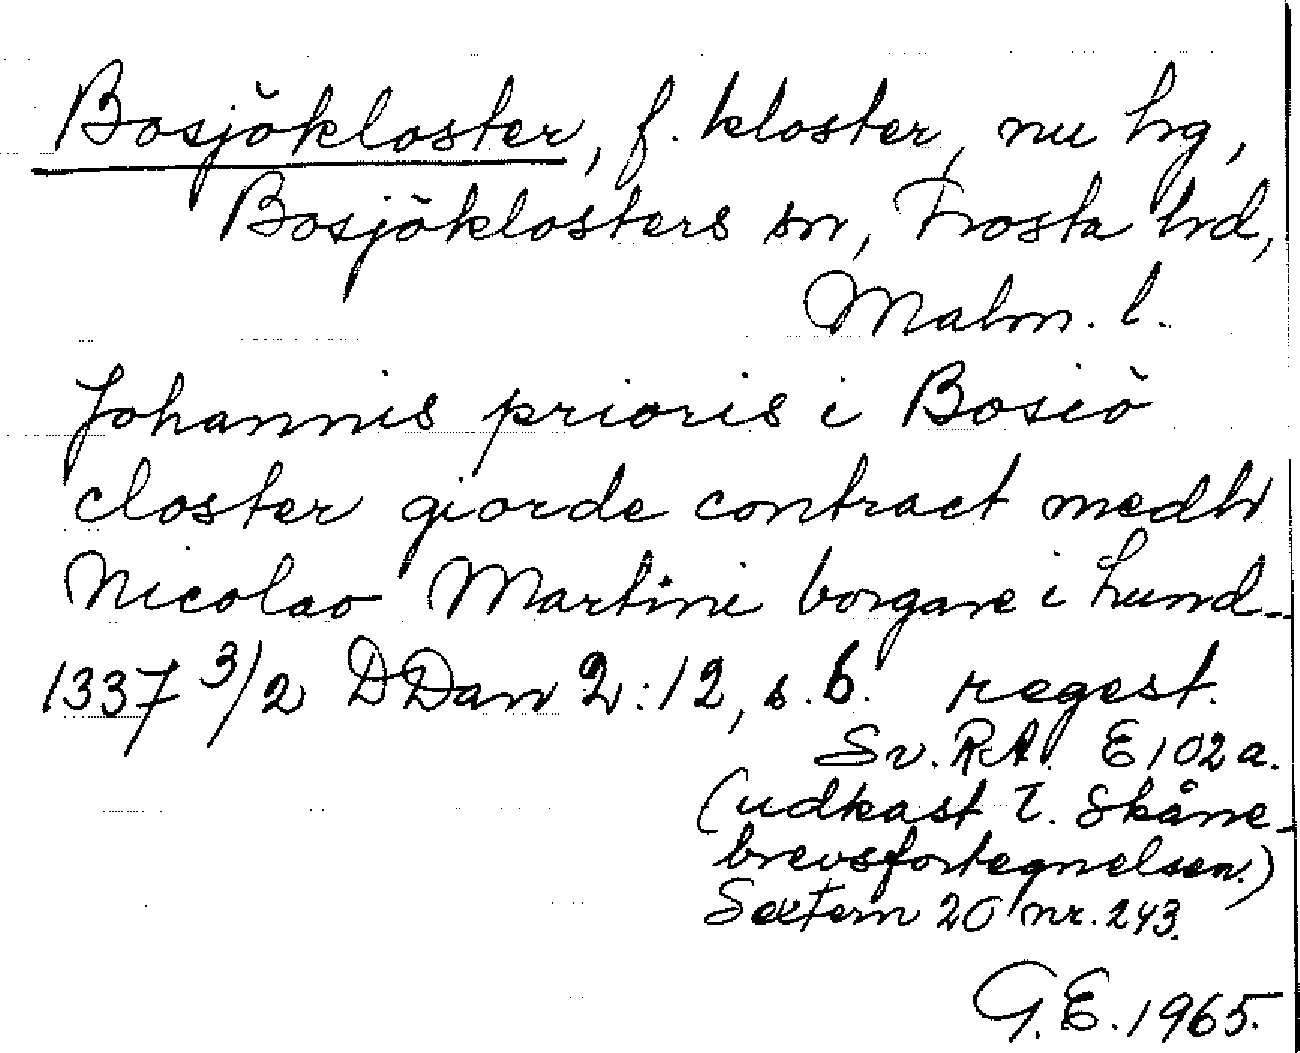 Bosjökloster, f. kloster, nu hg,
Bosjöklosters sn, Frosta hd,
Malm. l.
Johannis prioris i Bosiö
closter giorde contract medh
Nicolao Martini borgare i Lund-
1337 3/2 DDan 2:12, s. 6. regest.
Sv. RA. E 102 a.
(udkast t. Skåne-
brevsfortegnelsen.)
Sextern 20 nr. 243.
G.E. 1965.